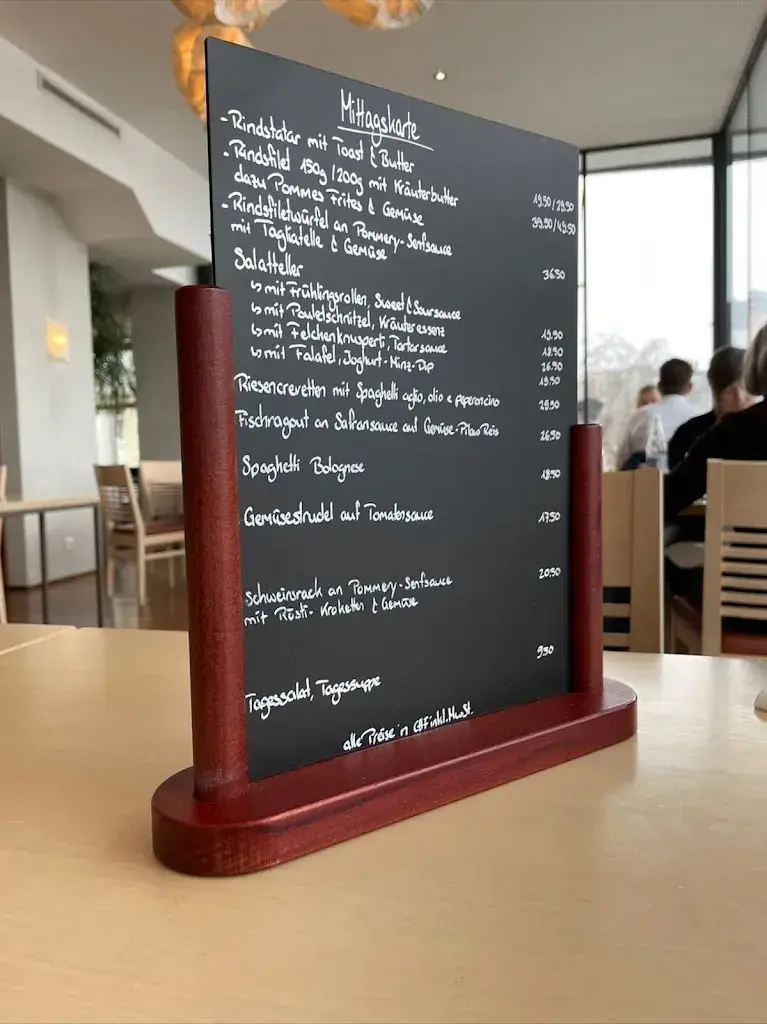 Mittagskarte
- Rindstatar mit Toast & Butter 19.50/29.50
- Rindsfilet 150g/200g mit Kräuterbutter 39.50/49.50
dazu Pommes Frites & Gemüse
- Rindsfiletwürfel an Pommery-Senfsauce 36.50
mit Tagliatelle & Gemüse
Salatteller
↳ mit Frühlingsrollen, Sweet & Soursauce 19.50
↳ mit Pouletschnitzel, Kräuteressenz 18.50
↳ mit Felchenknusperli, Tartarsauce 26.50
↳ mit Falafel, Joghurt-Minz-Dip 19.50
Riesencrevetten mit Spaghetti aglio, olio e peperoncino 28.50
Fischragout an Safransauce und Gemüse-Pilaw Reis 26.50
Spaghetti Bolognese 18.50
Gemüsestrudel auf Tomatensauce 17.50
Schweinsrack an Pommery-Senfsauce 20.50
mit Rösti-Kroketten & Gemüse
Tagessalat, Tagessuppe 9.50
alle Preise in CHF inkl. MwSt.